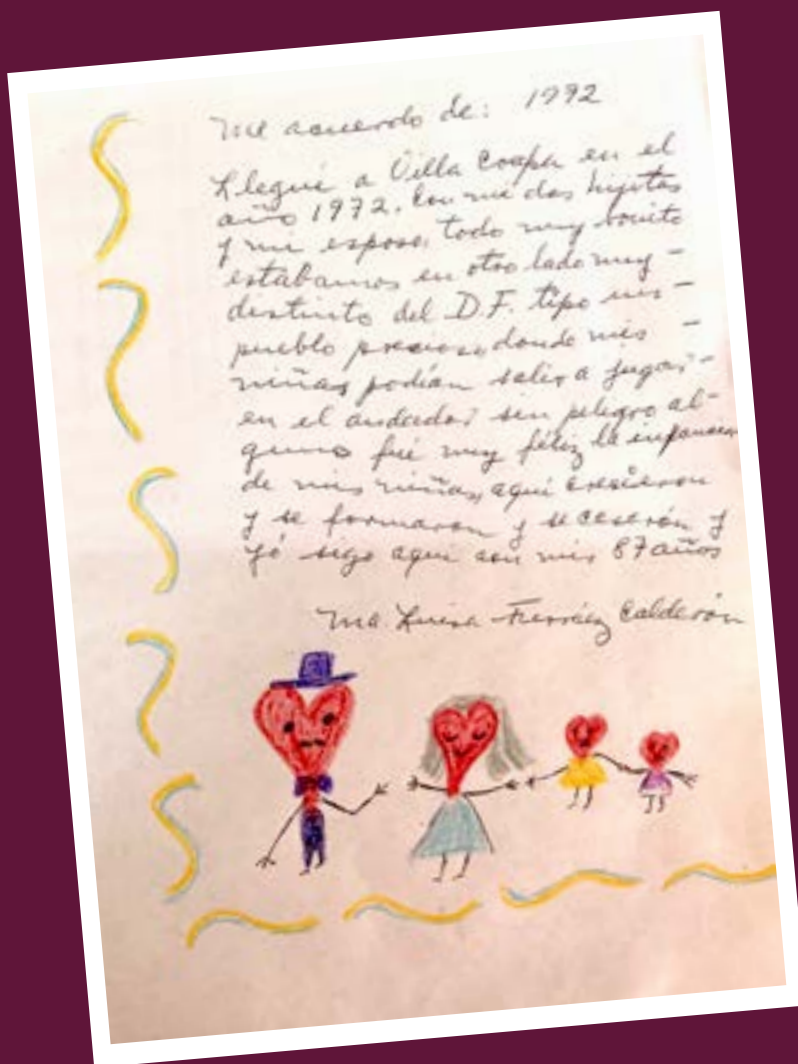 Me acuerdo de: 1972
Llegué a Villa Coapa en el
año 1972. Con mis dos hijitas
y mi esposo, todo muy bonito
estabamos en otro lado muy -
distinto del D.F. tipo
pueblo precioso donde mis -
niñas podían salir a jugar -
en el andador sin peligro al-
guno fué muy féliz la infancia
de mis niñas, aquí crecieron
y se formaron y se casarón y
yó sigo aquí con mis 87 años
Ma. Luisa Calderón